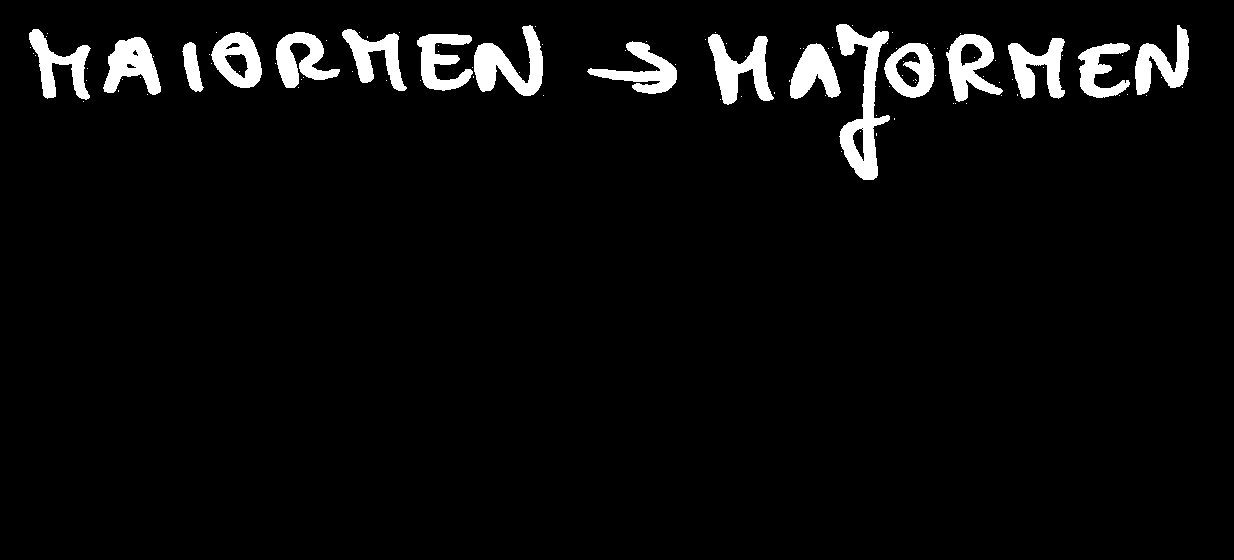 MAIORMEN → MAJORMEN